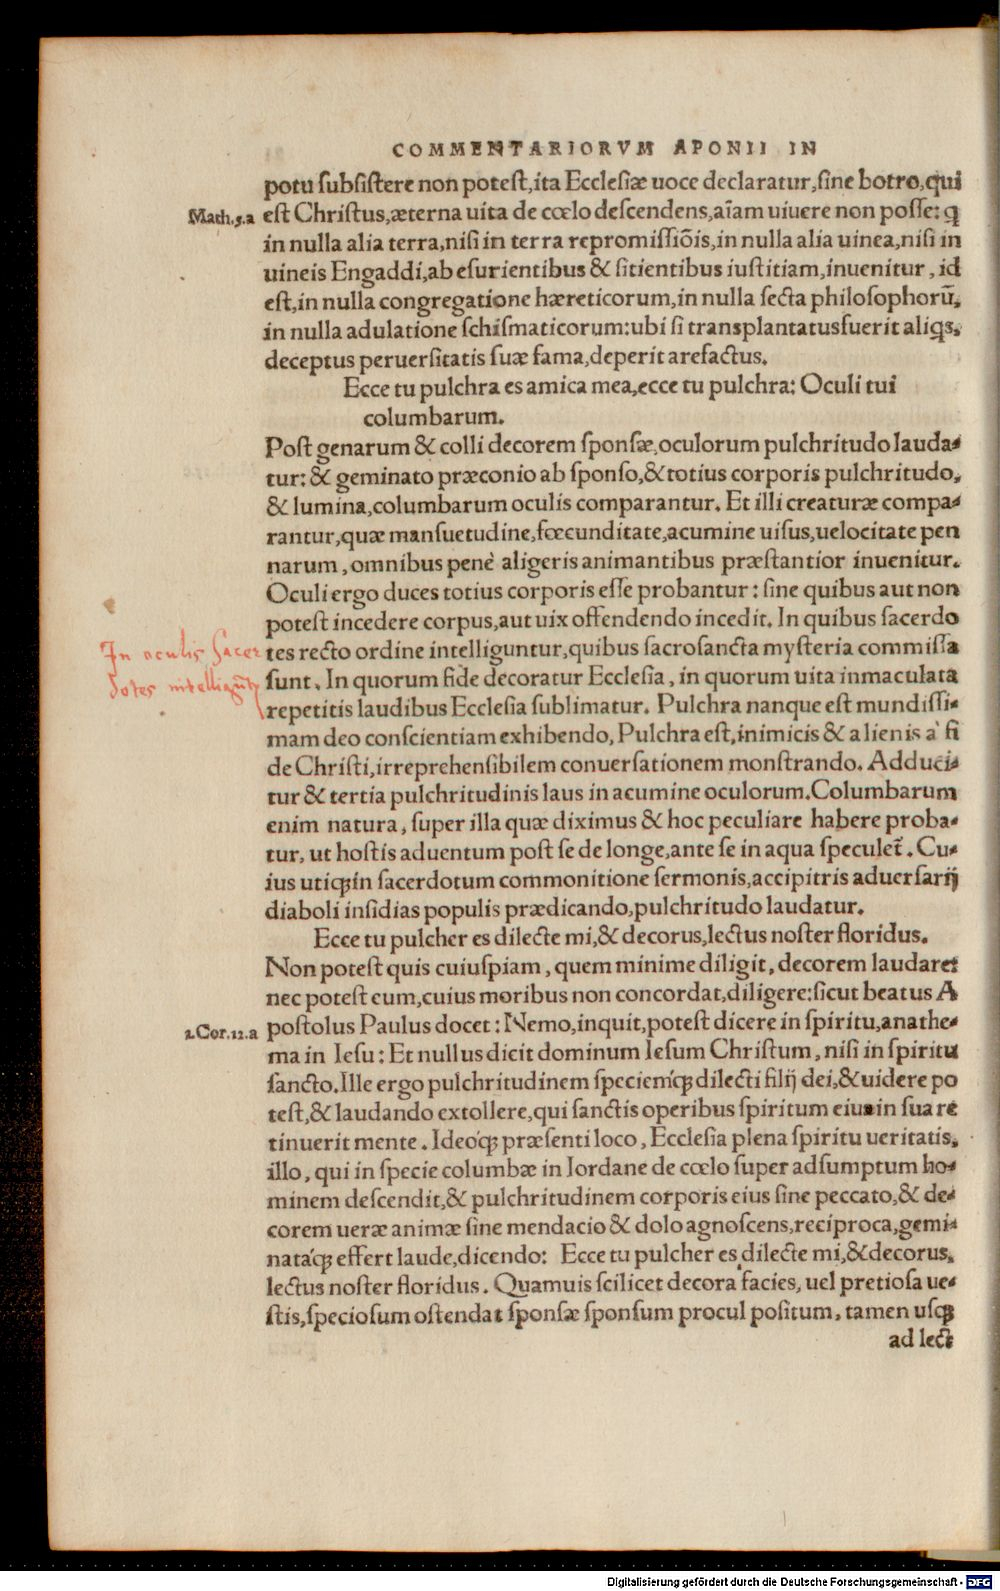 COMMENTARIORVM APONII IN
potu ſubſiſtere non poteſt,ita Eccleſiæ uoce declaratur,ſine botro,qui
Math.5.a
eſt Chriſtus,æterna uita de cœlo deſcendens,aĩam uiuere non poſſe: ꝗ
in nulla alia terra,niſi in terra repromiſſiõis,in nulla alia uinea,niſi in
uineis Engaddi,ab eſurientibus & ſitientibus iuſtitiam,inuenitur, id
eſt,in nulla congregatione hæreticorum,in nulla ſecta philoſophorũ,
in nulla adulatione ſchiſmaticorum:ubi ſi transplantatusfuerit aliꝗs,
deceptus peruerſitatis ſuæ fama,deperit arefactus.
Ecce tu pulchra es amica mea,ecce tu pulchra: Oculi tui
columbarum.
Poſt genarum & colli decorem ſponſæ,oculorum pulchritudo lauda-
tur: & geminato præconio ab ſponſo,& totius corporis pulchritudo,
& lumina,columbarum oculis comparantur. Et illi creaturæ compa-
rantur,quæ manſuetudine,fœcunditate,acumine uiſus,uelocitate pen
narum, omnibus penè aligeris animantibus præſtantior inuenitur.
Oculi ergo duces totius corporis eſſe probantur: ſine quibus aut non
poteſt incedere corpus,aut uix offendendo incedit. In quibus ſacerdo
In oculis ſacer
tes recto ordine intelliguntur,quibus ſacroſancta myſteria commiſſa
dotes intelligũt
ſunt. In quorum fide decoratur Eccleſia, in quorum uita inmaculata
repetitis laudibus Eccleſia ſublimatur. Pulchra nanque eſt mundiſſi-
mam deo conſcientiam exhibendo, Pulchra eſt,inimicis & alienis à fi
de Chriſti,irreprehenſibilem conuerſationem monſtrando. Adduci-
tur & tertia pulchritudinis laus in acumine oculorum.Columbarum
enim natura, ſuper illa quæ diximus & hoc peculiare habere proba-
tur, ut hoſtis aduentum poſt ſe de longe,ante ſe in aqua ſpeculet̃. Cu-
ius utiqꝫ in ſacerdotum commonitione ſermonis,accipitris aduerſarij
diaboli inſidias populis prædicando,pulchritudo laudatur.
Ecce tu pulcher es dilecte mi,& decorus,lectus noſter floridus.
Non poteſt quis cuiuſpiam, quem minime diligit, decorem laudare:
nec poteſt eum,cuius moribus non concordat,diligere:ſicut beatus A
1.Cor.12.a
poſtolus Paulus docet: Nemo,inquit,poteſt dicere in ſpiritu,anathe-
ma in Ieſu: Et nullus dicit dominum Ieſum Chriſtum, niſi in ſpiritu
ſancto.Ille ergo pulchritudinem ſpeciemq́ꝫ dilecti filij dei,& uidere po
teſt,& laudando extollere,qui ſanctis operibus ſpiritum eius in ſua re
tinuerit mente. Ideoq́ꝫ præſenti loco, Eccleſia plena ſpiritu ueritatis,
illo, qui in ſpecie columbæ in Iordane de cœlo ſuper adſumptum ho-
minem deſcendit,& pulchritudinem corporis eius ſine peccato,& de-
corem ueræ animæ ſine mendacio & dolo agnoſcens,reciproca,gemi-
nataq́ꝫ effert laude,dicendo: Ecce tu pulcher es dilecte mi,& decorus,
lectus noſter floridus. Quamuis ſcilicet decora facies, uel pretioſa ue-
ſtis,ſpecioſum oſtendat ſponſæ ſponſum procul poſitum, tamen uſqꝫ
ad lect
Digitalisierung gefördert durch die Deutsche Forschungsgemeinschaft - DFG